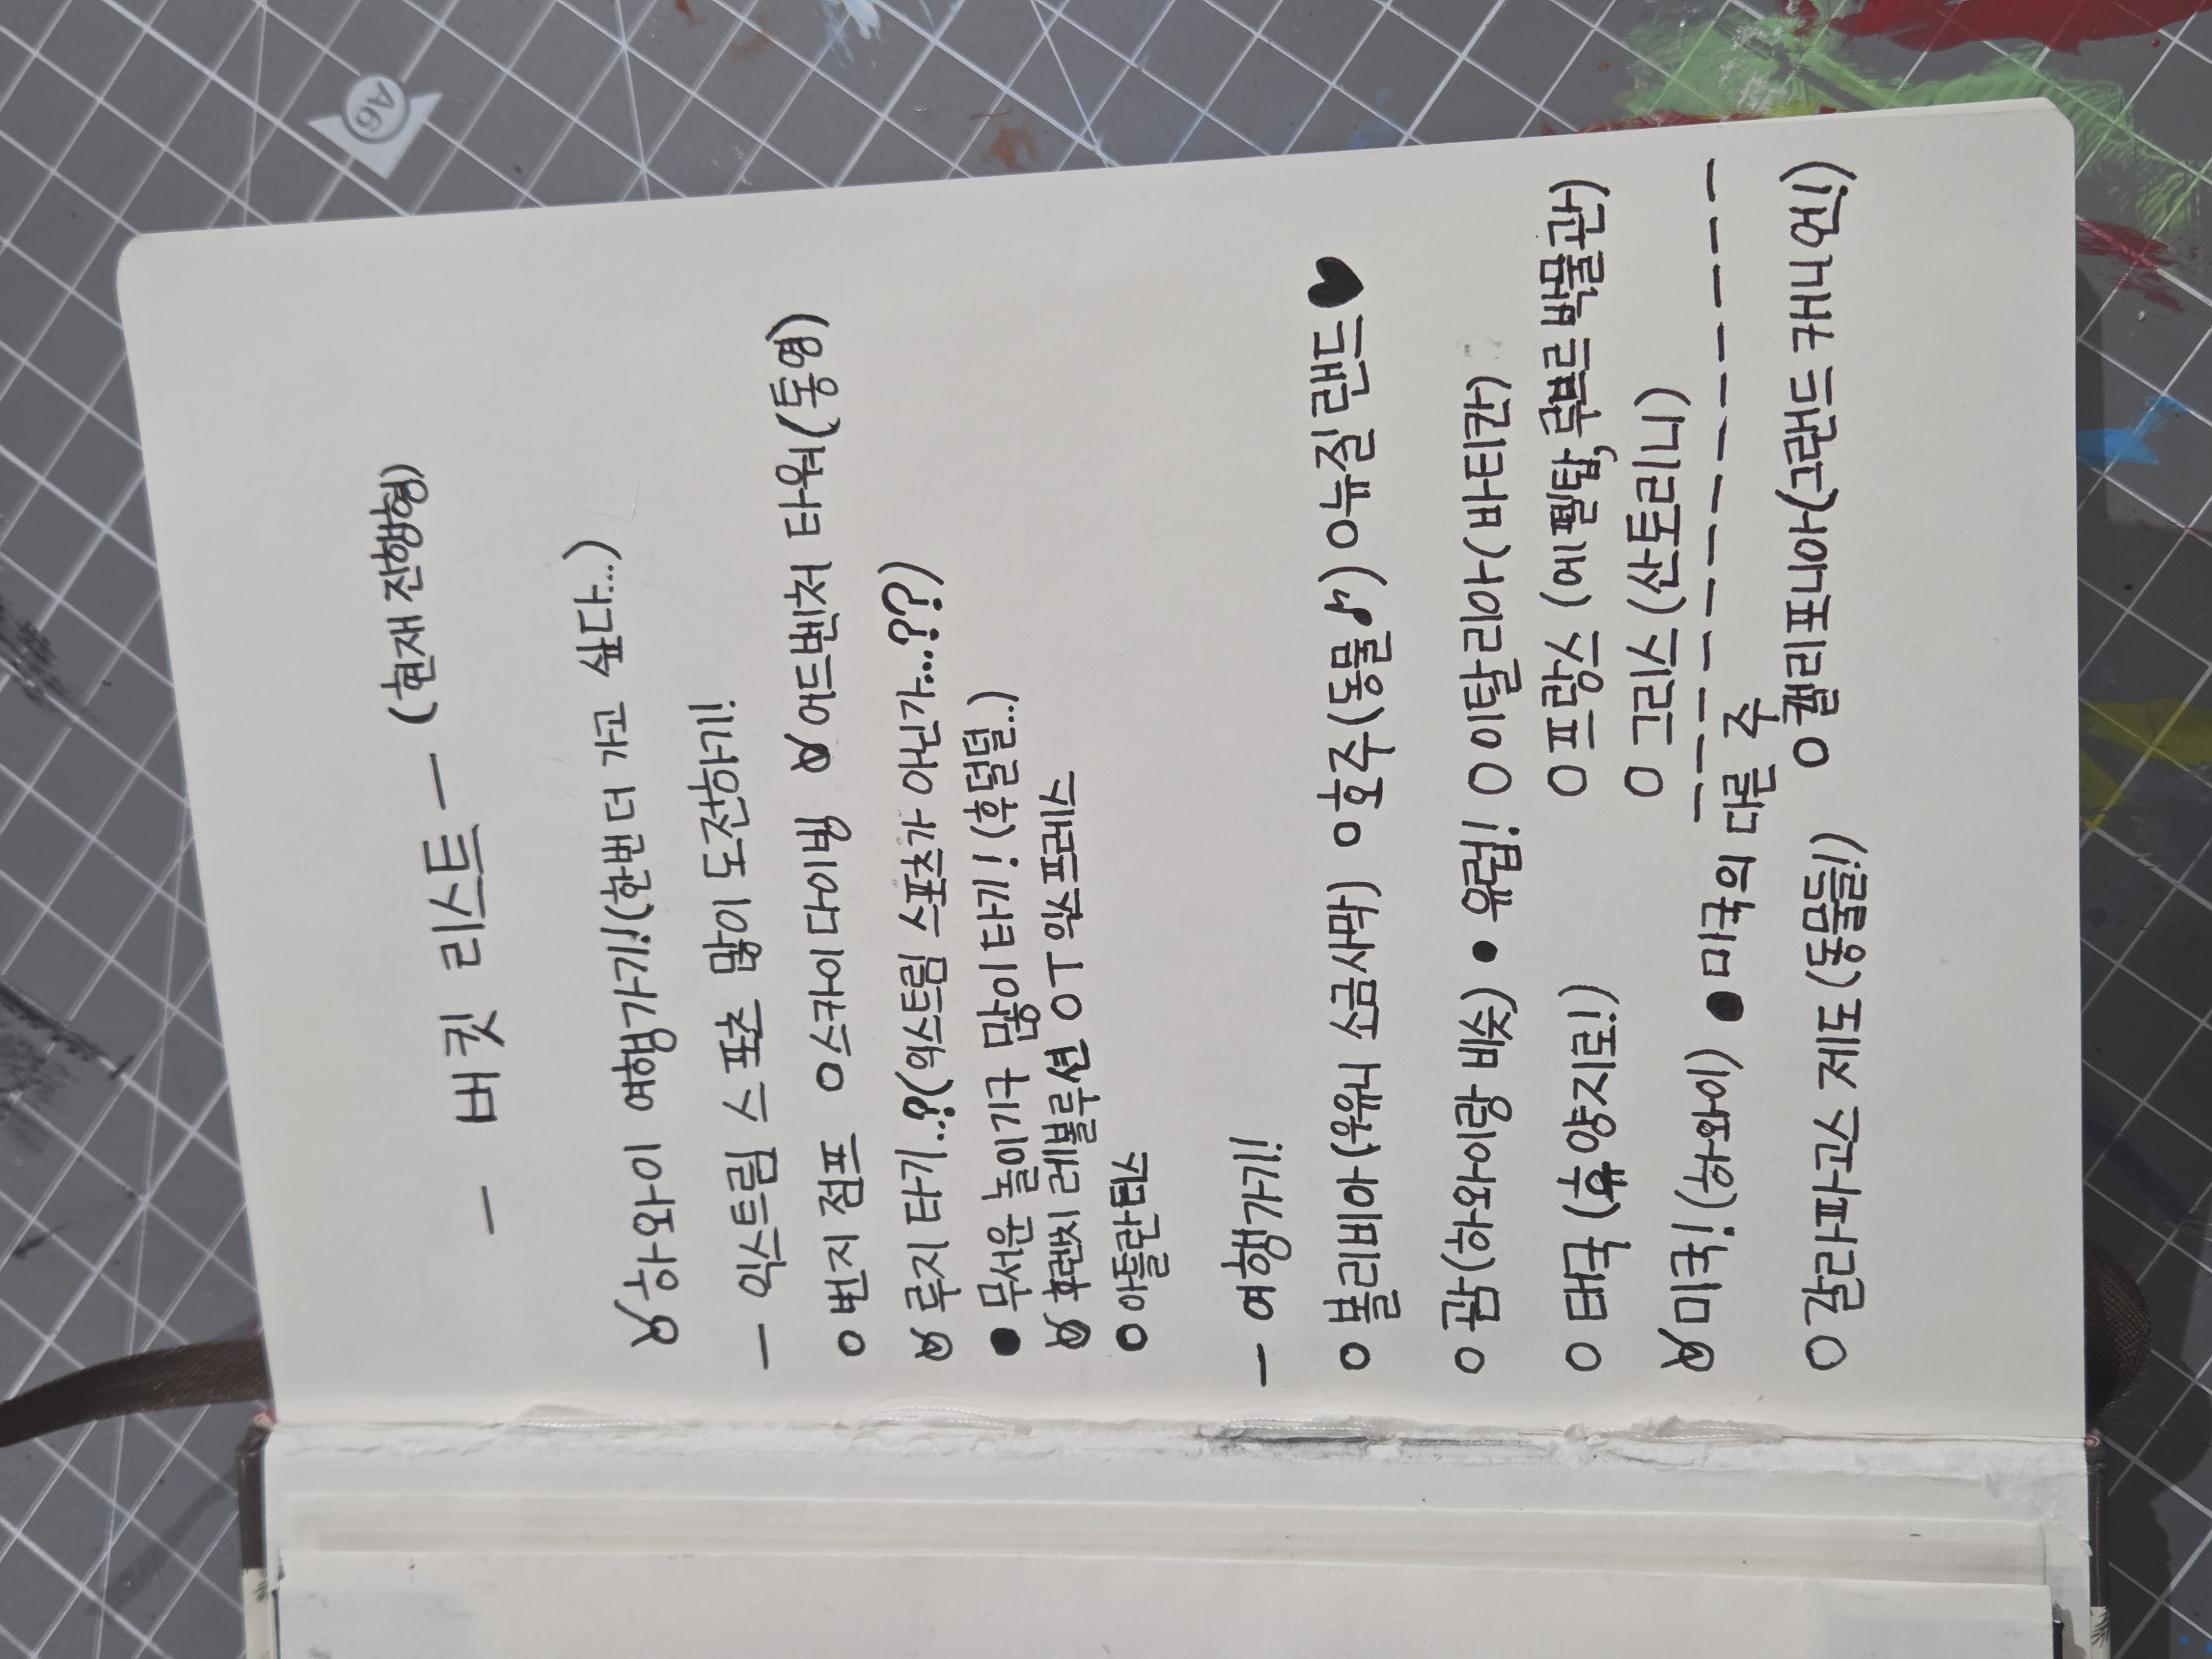 - 버킷 리스트 - (현재 진행형)
하와이 여행가기!(한번 더 가고 싶다...)
- 익스트림 스포츠 많이 도전하기!
○ 번지 점프 ○ 스카이 다이빙 어드벤처 타워(통영)
루지 타기..?(익스트림 스포츠가 아닌가...???)
● 무서운 놀이기구 많이 타기! (후덜덜..)
후렌치 레볼루션 ○ T 익스프레스
○ 아틀란티스
- 여행가기!
○ 볼리비아 (우유니 소금사막) ○ 호주(동물♪) ○ 뉴질랜드♥
○ 괌(하와이랑 비슷) ● 유럽! ○ 이탈리아(바티칸)
○ 프랑스 (에펠탑, 루브르 박물관)
○ 태국 (휴양지로!)
○ 그리스 (싼토리니)
미국!(하와이) ● 미국의 다른 주
○ 갈라파고스 제도(동물들!) ○ 캘리포니아(그랜드 캐니언!)
A6